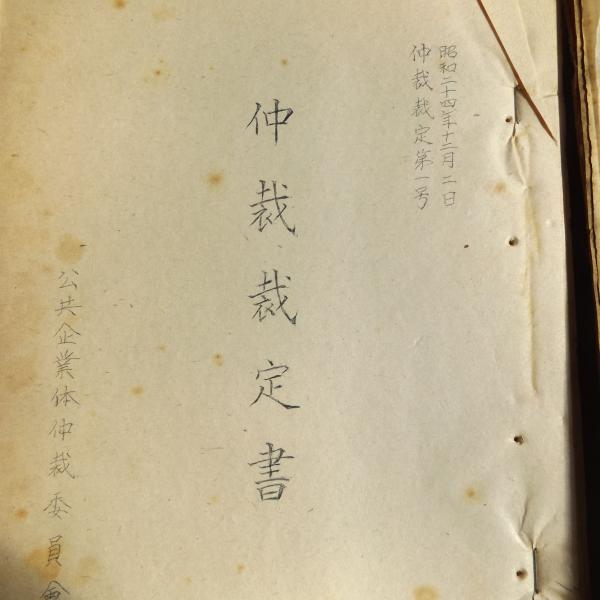 昭和二十四年十二月二日
仲裁裁定第一号
仲裁裁定書
公共企業体仲裁委員會